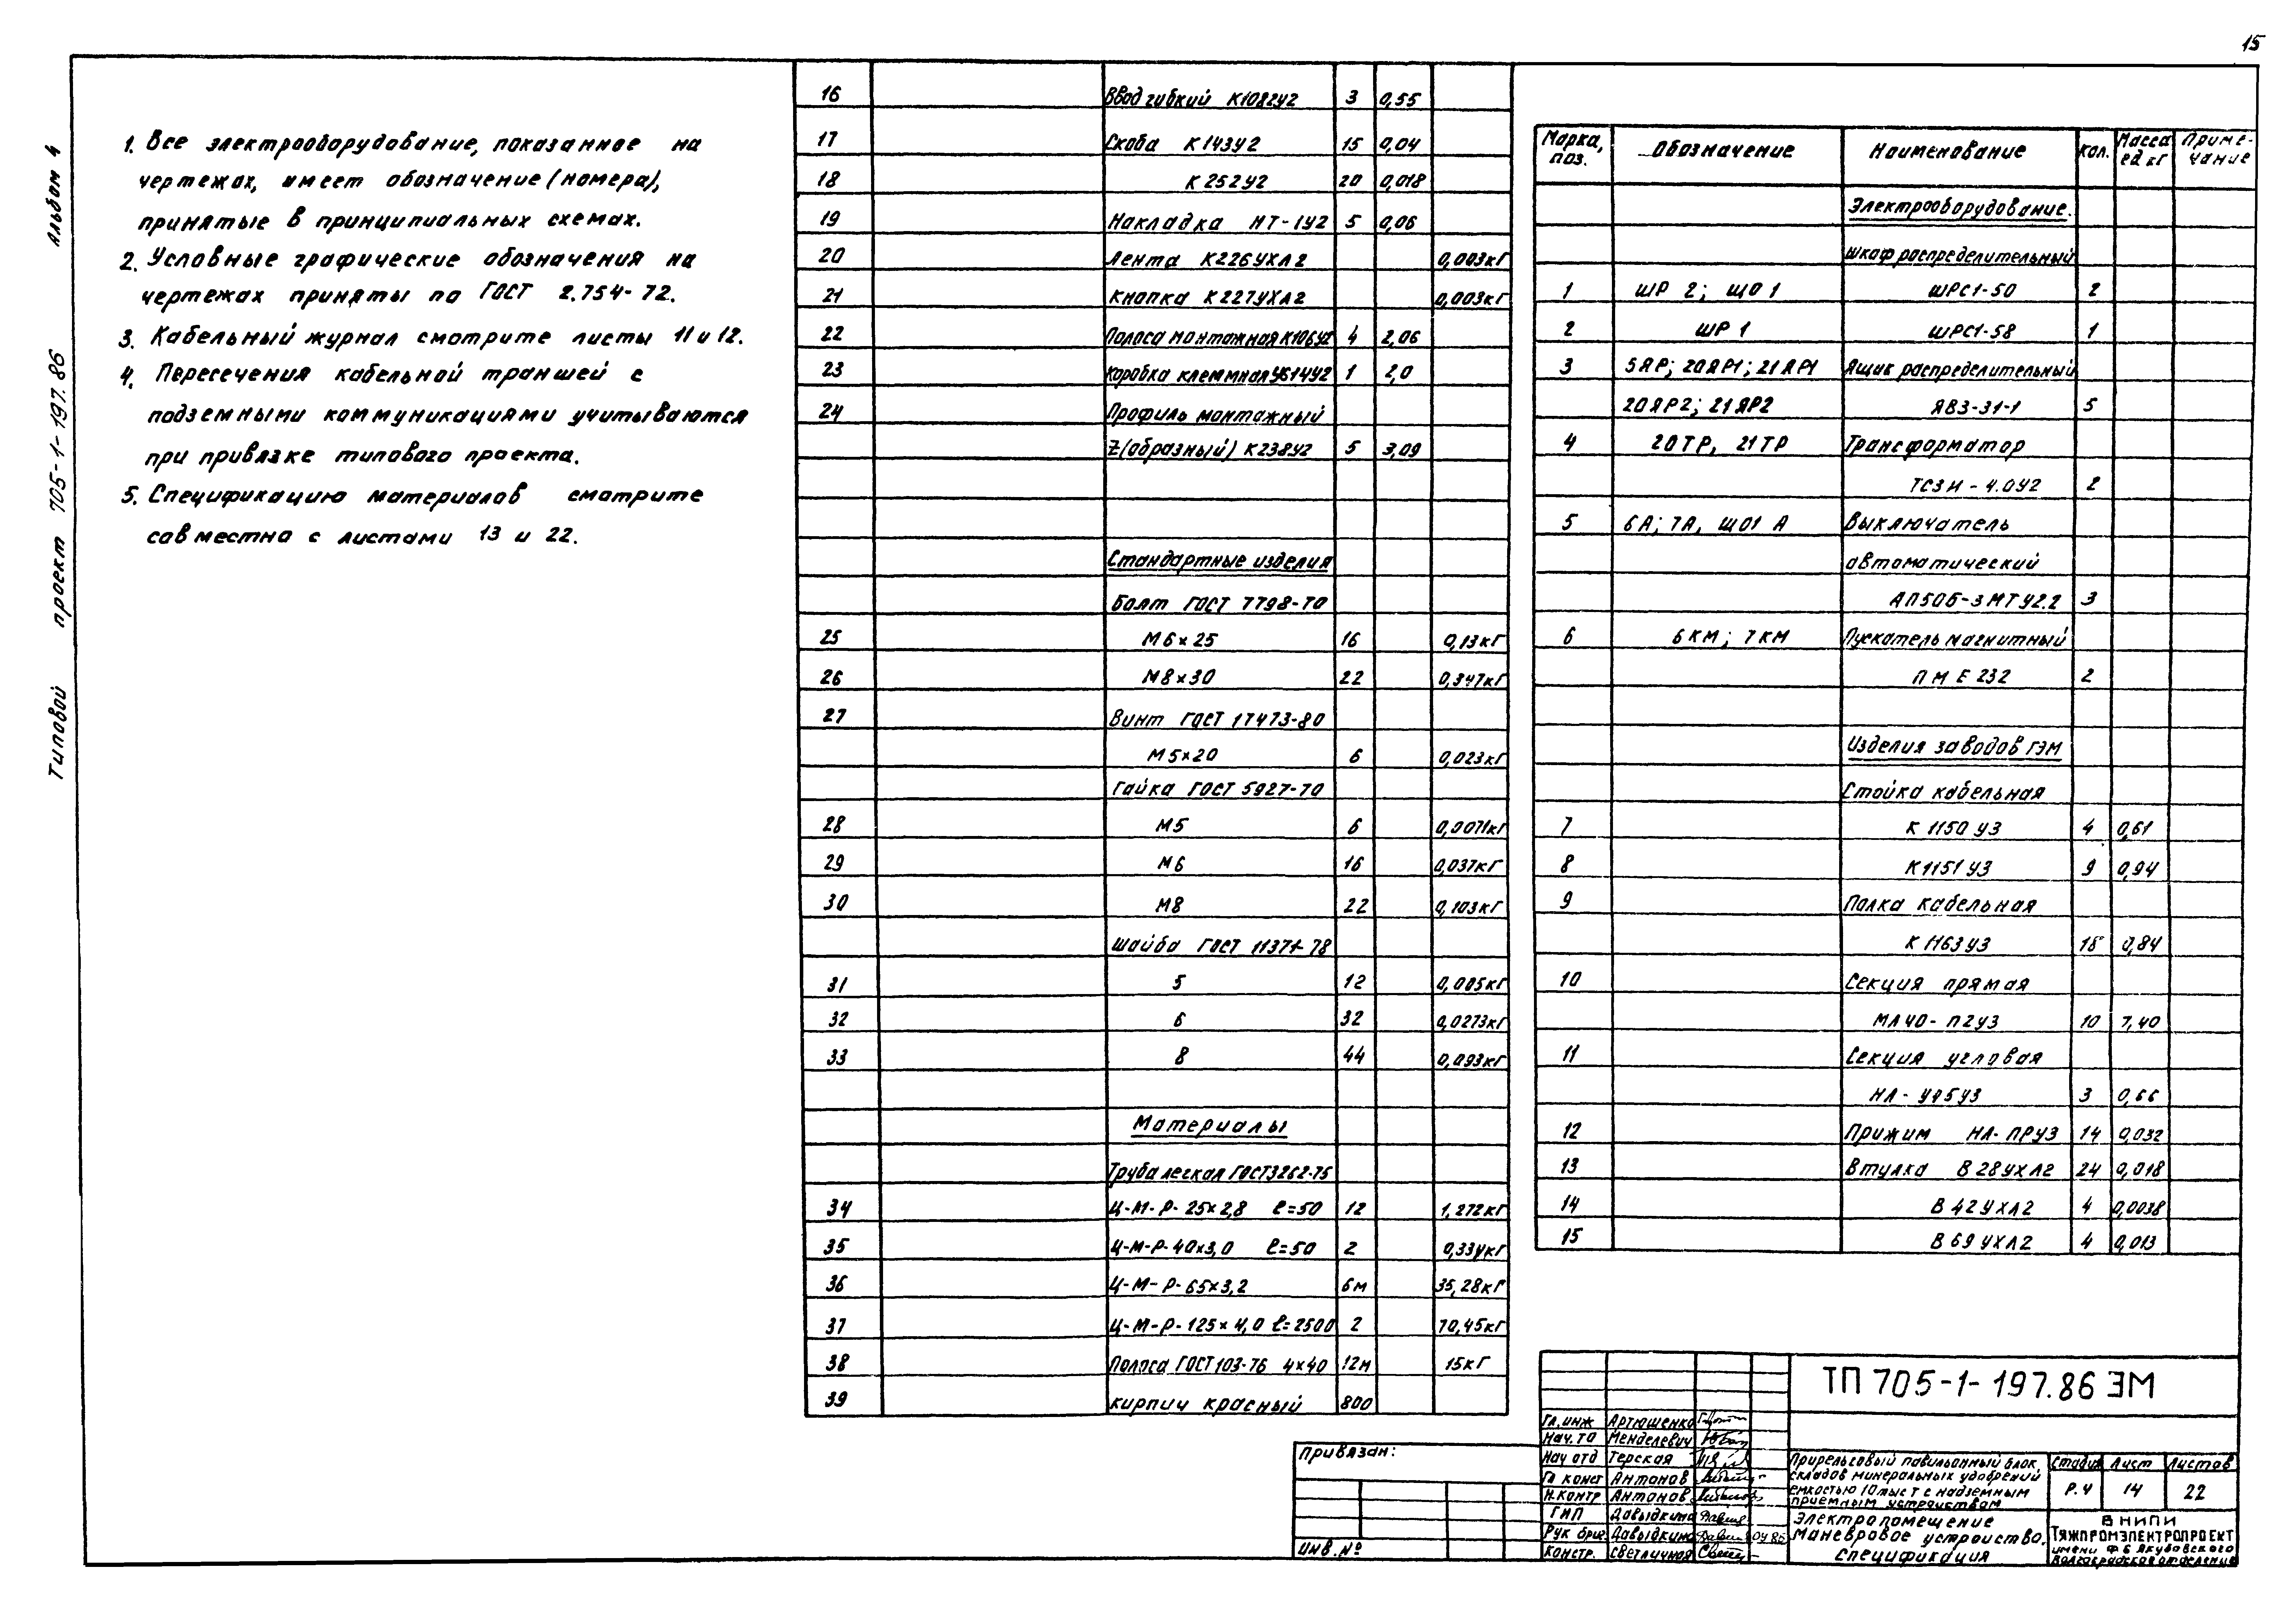 15
Типовой проект 705-1-197.86 Альбом 4
1. Все электрооборудование, показанное на
чертежах, имеет обозначение (номера),
принятые в принципиальных схемах.
2. Условные графические обозначения на
чертежах приняты по ГОСТ 2.754-72.
3. Кабельный журнал смотрите листы 11 и 12.
4. Пересечения кабельной траншей с
подземными коммуникациями учитываются
при привязке типового проекта.
5. Спецификацию материалов смотрите
совместно с листами 13 и 22.
16 Ввод гибкий К1082У2 3 0,55
17 Скоба К143У2 15 0,04
18 К252У2 20 0,018
19 Накладка НТ-1У2 5 0,06
20 Лента К226УХЛ2 0,003кг
21 Кнопка К227УХЛ2 0,003кг
22 Полоса монтажная К106У2 4 2,06
23 Коробка клеммная У614У2 1 2,0
24 Профиль монтажный
Z(образный) К238У2 5 3,09
Стандартные изделия
Болт ГОСТ 7798-70
25 М6×25 16 0,13кг
26 М8×30 22 0,347кг
27 Винт ГОСТ 17473-80
М5×20 6 0,023кг
Гайка ГОСТ 5927-70
28 М5 6 0,0071кг
29 М6 16 0,037кг
30 М8 22 0,103кг
Шайба ГОСТ 11371-78
31 5 12 0,005кг
32 6 32 0,0273кг
33 8 44 0,093кг
Материалы
Труба легкая ГОСТ3262-75
34 Ц-М-Р-25×2,8 ℓ=50 12 1,272кг
35 Ц-М-Р-40×3,0 ℓ=50 2 0,33кг
36 Ц-М-Р-65×3,2 6м 35,28кг
37 Ц-М-Р-125×4,0 ℓ=2500 2 70,45кг
38 Полоса ГОСТ103-76 4×40 12м 15кг
39 кирпич красный 800
Марка, поз. Обозначение Наименование Кол. Масса ед кг Приме-чание
Электрооборудование.
Шкаф распределительный
1 ШР 2; ЩО 1 ШРС1-50 2
2 ШР 1 ШРС1-58 1
3 5ЯР; 20ЯР1; 21ЯР1 Ящик распределительный
20ЯР2; 21ЯР2 ЯВЗ-31-1 5
4 20ТР, 21ТР Трансформатор
ТСЗИ-4.0У2 2
5 6А; 7А, ЩО1 А Выключатель
автоматический
АП50Б-3МТУ2.2 3
6 6КМ; 7КМ Пускатель магнитный
ПМЕ 232 2
Изделия заводов ГЭМ
Стойка кабельная
7 К 1150 У3 4 0,61
8 К1151 У3 9 0,94
9 Полка кабельная
К 1163У3 18 0,84
10 Секция прямая
МЛ40-П2У3 10 7,40
11 Секция угловая
НЛ-У45У3 3 0,66
12 Прижим НЛ-ПРУ3 14 0,032
13 Втулка В28УХЛ2 24 0,018
14 В42УХЛ2 4 0,0038
15 В69УХЛ2 4 0,013
ТП 705-1-197.86 ЭМ
Гл.инж Артюшенко
Нач.ТО Менделевич
Нач отд Терская
Гл конст Антонов
Н.контр Антонов
ГИП Давыдкина
Рук бриг Давыдкина
Констр. Светличная
Прирельсовый павильонный блок
складов минеральных удобрений
емкостью 10 тыс т с надземным
приемным устройством
Стадия Лист Листов
Р.Ч 14 22
Электропомещение
Маневровое устройство.
Спецификация
ВНИПИ
Тяжпромэлектропроект
имени Ф Б Якубовского
Волгоградское отделение
Привязан:
Инв.№